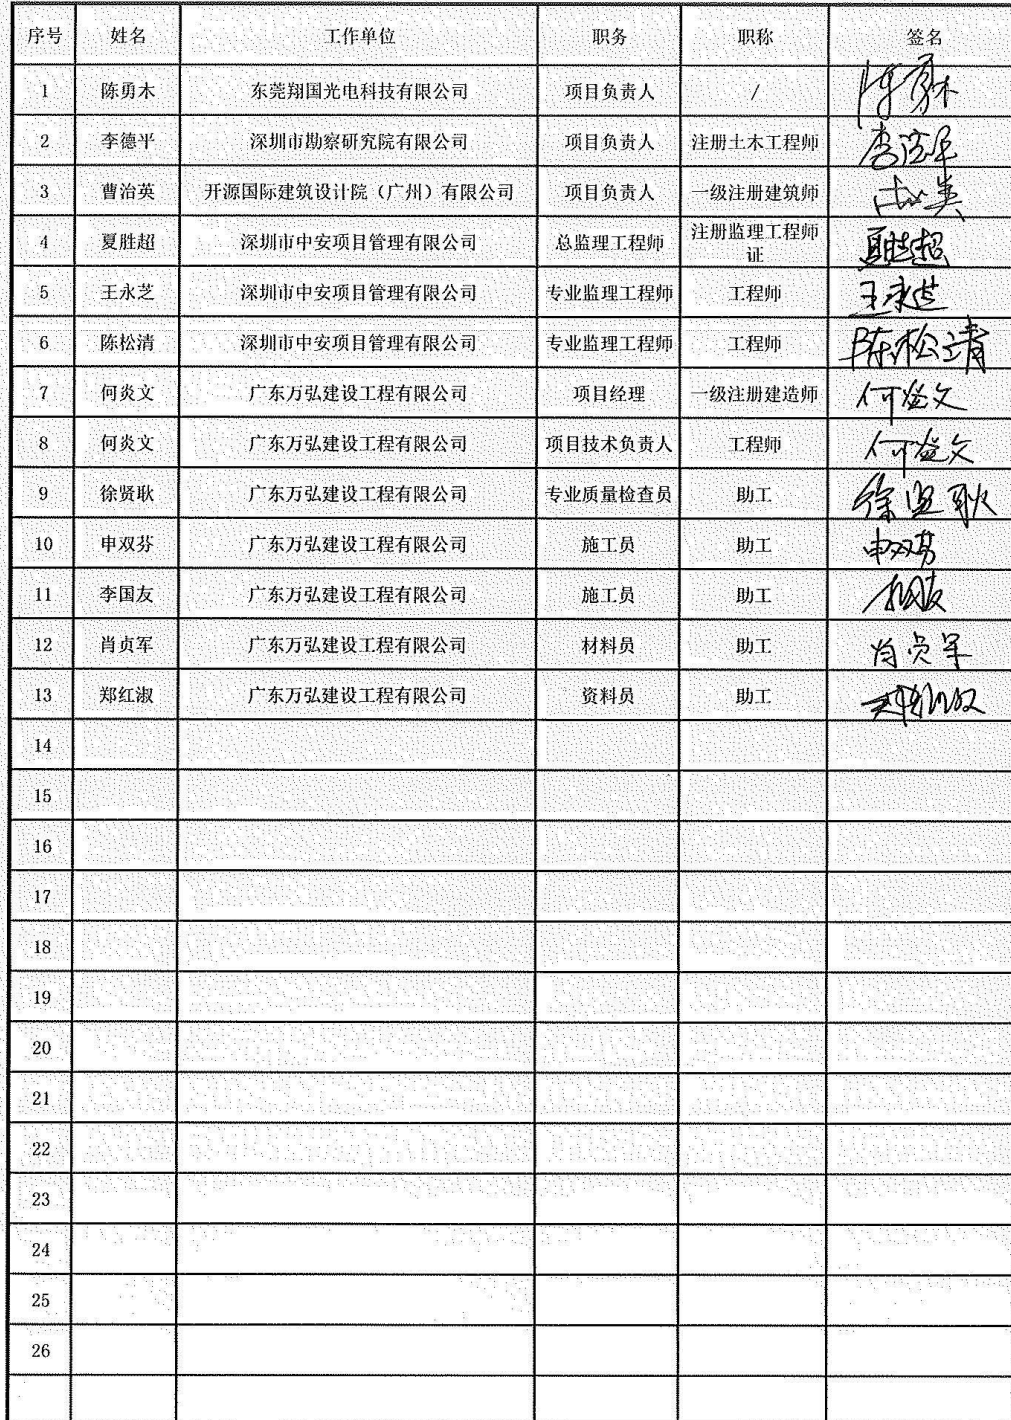 序号 姓名 工作单位 职务 职称 签名
1 陈勇木 东莞翔国光电科技有限公司 项目负责人 / 陈勇木
2 李德平 深圳市勘察研究院有限公司 项目负责人 注册土木工程师
3 曹治英 开源国际建筑设计院（广州）有限公司 项目负责人 一级注册建筑师
4 夏胜超 深圳市中安项目管理有限公司 总监理工程师 注册监理工程师
证 夏胜超
5 王永芝 深圳市中安项目管理有限公司 专业监理工程师 工程师 王永芝
6 陈松清 深圳市中安项目管理有限公司 专业监理工程师 工程师 陈松清
7 何炎文 广东万弘建设工程有限公司 项目经理 一级注册建造师 何炎文
8 何炎文 广东万弘建设工程有限公司 项目技术负责人 工程师 何炎文
9 徐贤耿 广东万弘建设工程有限公司 专业质量检查员 助工 徐贤耿
10 申双芬 广东万弘建设工程有限公司 施工员 助工 申双芬
11 李国友 广东万弘建设工程有限公司 施工员 助工
12 肖贞军 广东万弘建设工程有限公司 材料员 助工 肖贞军
13 郑红淑 广东万弘建设工程有限公司 资料员 助工
14
15
16
17
18
19
20
21
22
23
24
25
26